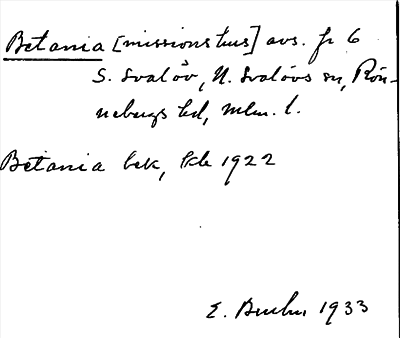 Betania [missionshus] avs. fr 6
S. Svalöv, N. Svalövs sn, Rön-
nebergs hd, Mlm. l.
Betania bek, Ek 1922
E. 1933